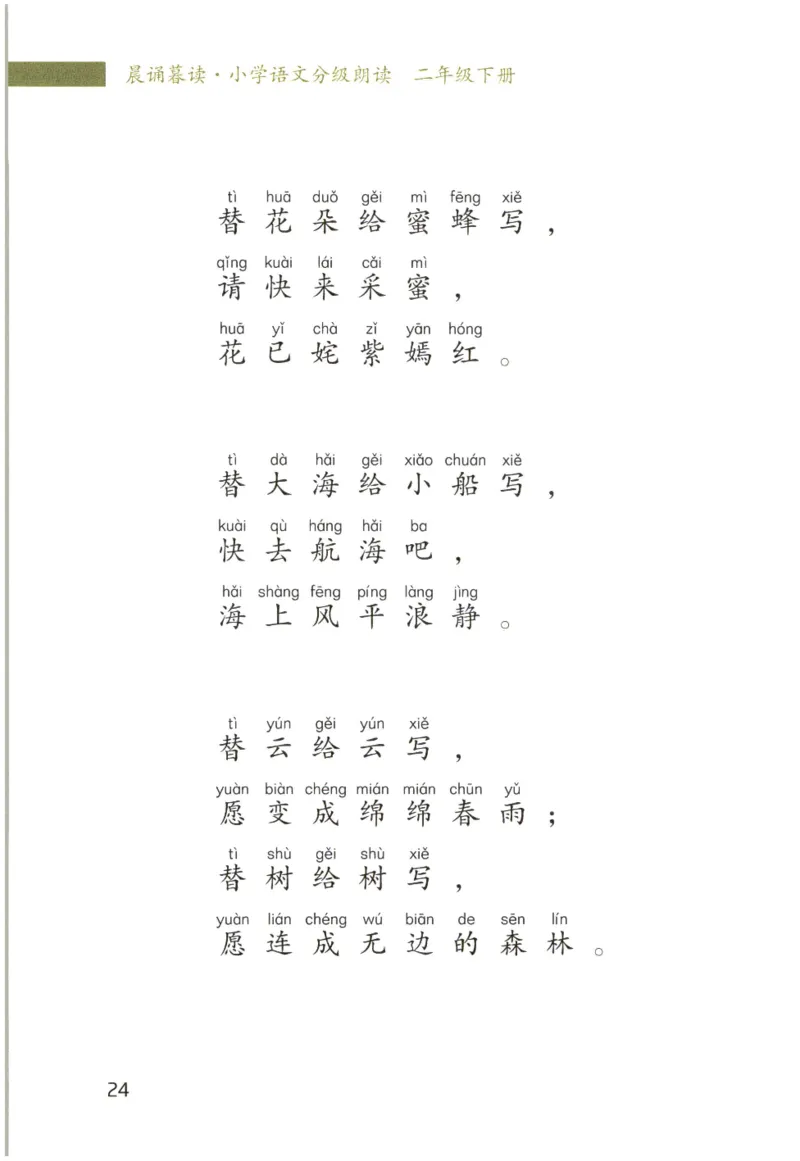 晨诵暮读·小学语文分级朗读 二年级下册
tì huā duǒ gěi mì fēng xiě
替花朵给蜜蜂写，
qǐng kuài lái cǎi mì
请快来采蜜，
huā yǐ chà zǐ yān hóng
花已姹紫嫣红。
tì dà hǎi gěi xiǎo chuán xiě
替大海给小船写，
kuài qù háng hǎi ba
快去航海吧，
hǎi shàng fēng píng làng jìng
海上风平浪静。
tì yún gěi yún xiě
替云给云写，
yuàn biàn chéng mián mián chūn yǔ
愿变成绵绵春雨；
tì shù gěi shù xiě
替树给树写，
yuàn lián chéng wú biān de sēn lín
愿连成无边的森林。
24